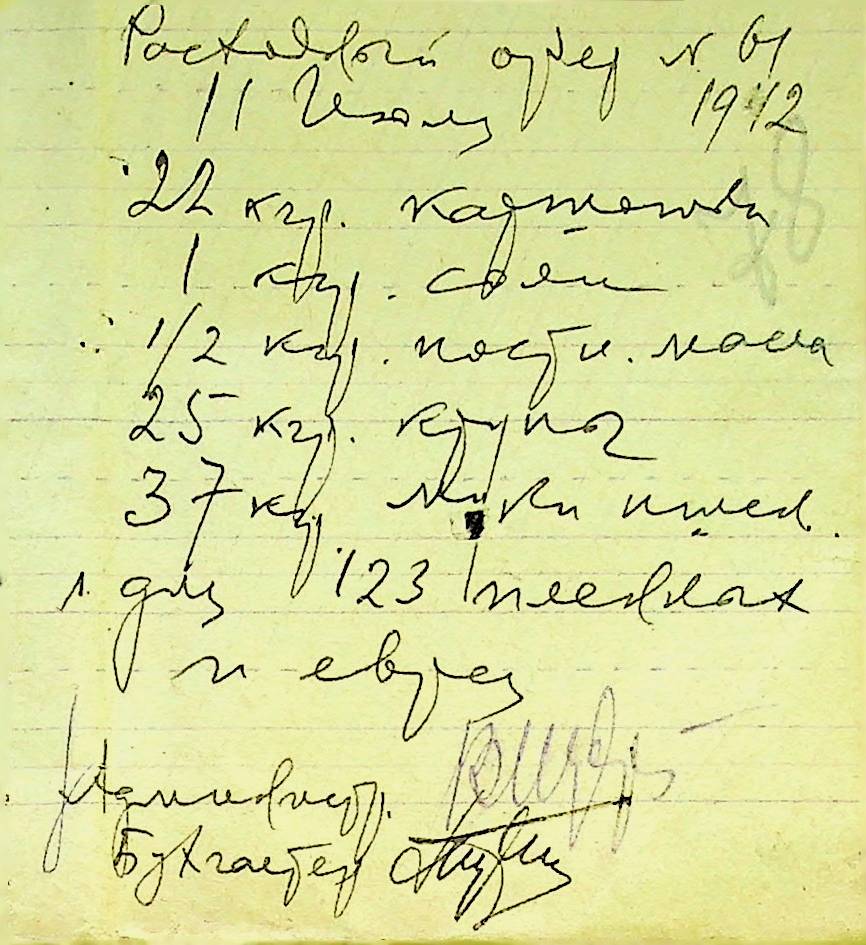 Расходный ордер № 61
11 Июля 1942
22 кгр. картошки
1 кгр. соли
1/2 кгр. постн. масла
25 кгр. крупы
37 кгр муки пшен.
для 123
и евреев
Администр.
Бухгалтер